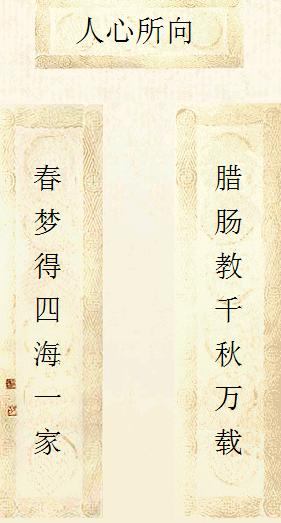 人心所向
腊肠教千秋万载
春梦得四海一家